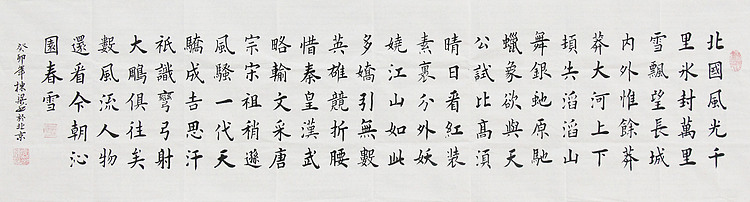 北國風光千
里氷封萬里
雪飄望長城
内外惟餘莽
莽大河上下
頃失滔滔山
舞銀虵原馳
蠟象欲與天
公試比高須
晴日看紅裝
素裹分外妖
嬈江山如此
多嬌引無數
英雄競折腰
惜秦皇漢武
略輸文采唐
宗宋祖稍遜
風騷一代天
驕成吉思汗
祇識彎弓射
大鵰俱往矣
數風流人物
還看今朝沁
園春雪
癸卯年棟梁书於北京